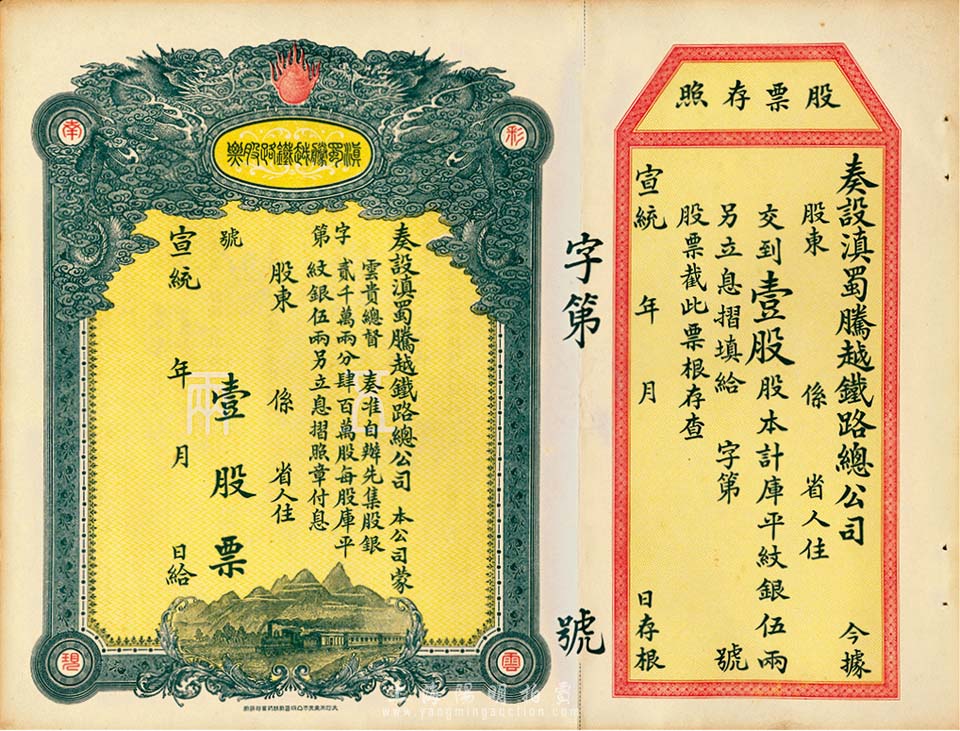 股票存照
奏設滇蜀騰越鐵路總公司 今據
股東 係 省人住
交到壹股股本計庫平紋銀伍兩
另立息摺填給 字第 號
股票截此票根存查
宣統 年 月 日存根
字第 號
滇蜀騰越鐵路股票
彩
南
雲
碧
奏設滇蜀騰越鐵路總公司 本公司蒙
雲貴總督 奏准自辦先集股銀
貳千萬兩分肆百萬股每股庫平
紋銀伍兩另立息摺照章付息
字第 號
股東 係 省人住
壹股票
宣統 年 月 日給
伍兩
上海陽明拍賣
www.yangmingauction.com